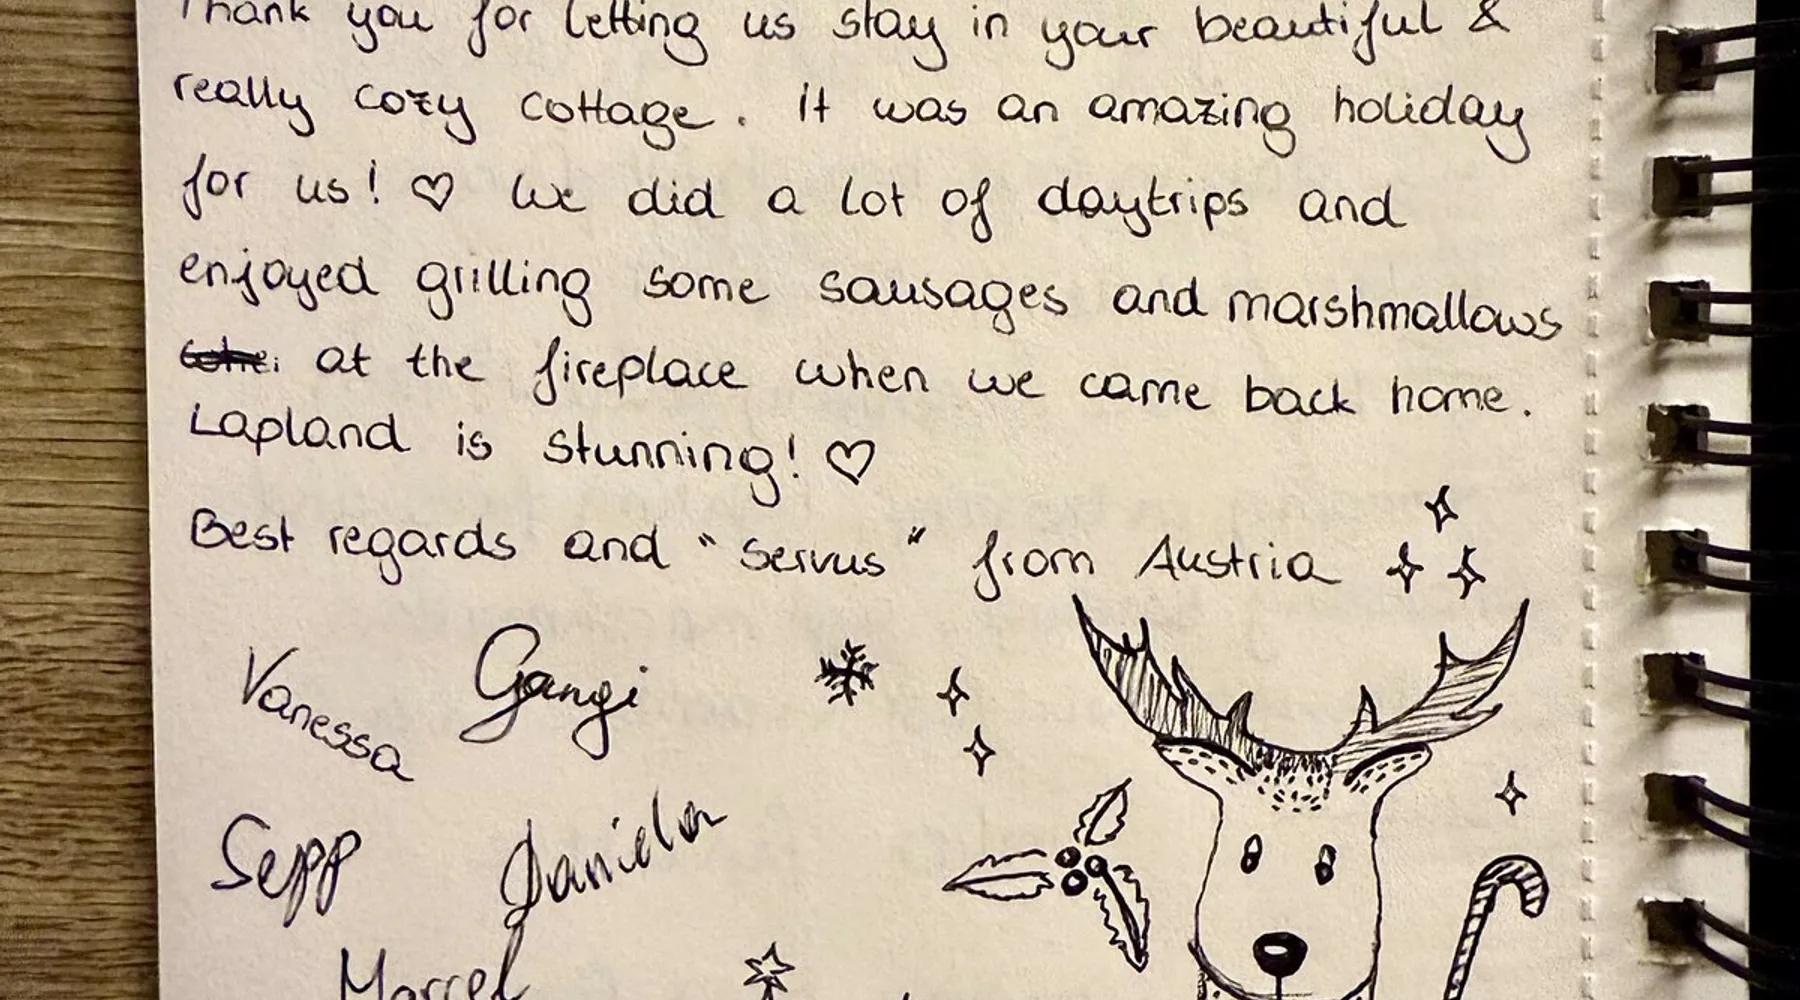 Thank you for letting us stay in your beautiful &
really cozy cottage. It was an amazing holiday
for us! ♡ We did a lot of daytrips and
enjoyed grilling some sausages and marshmallows
at the fireplace when we came back home.
Lapland is stunning! ♡
Best regards and "Servus" from Austria
Vanessa Gangi
Sepp Daniela
Marcel